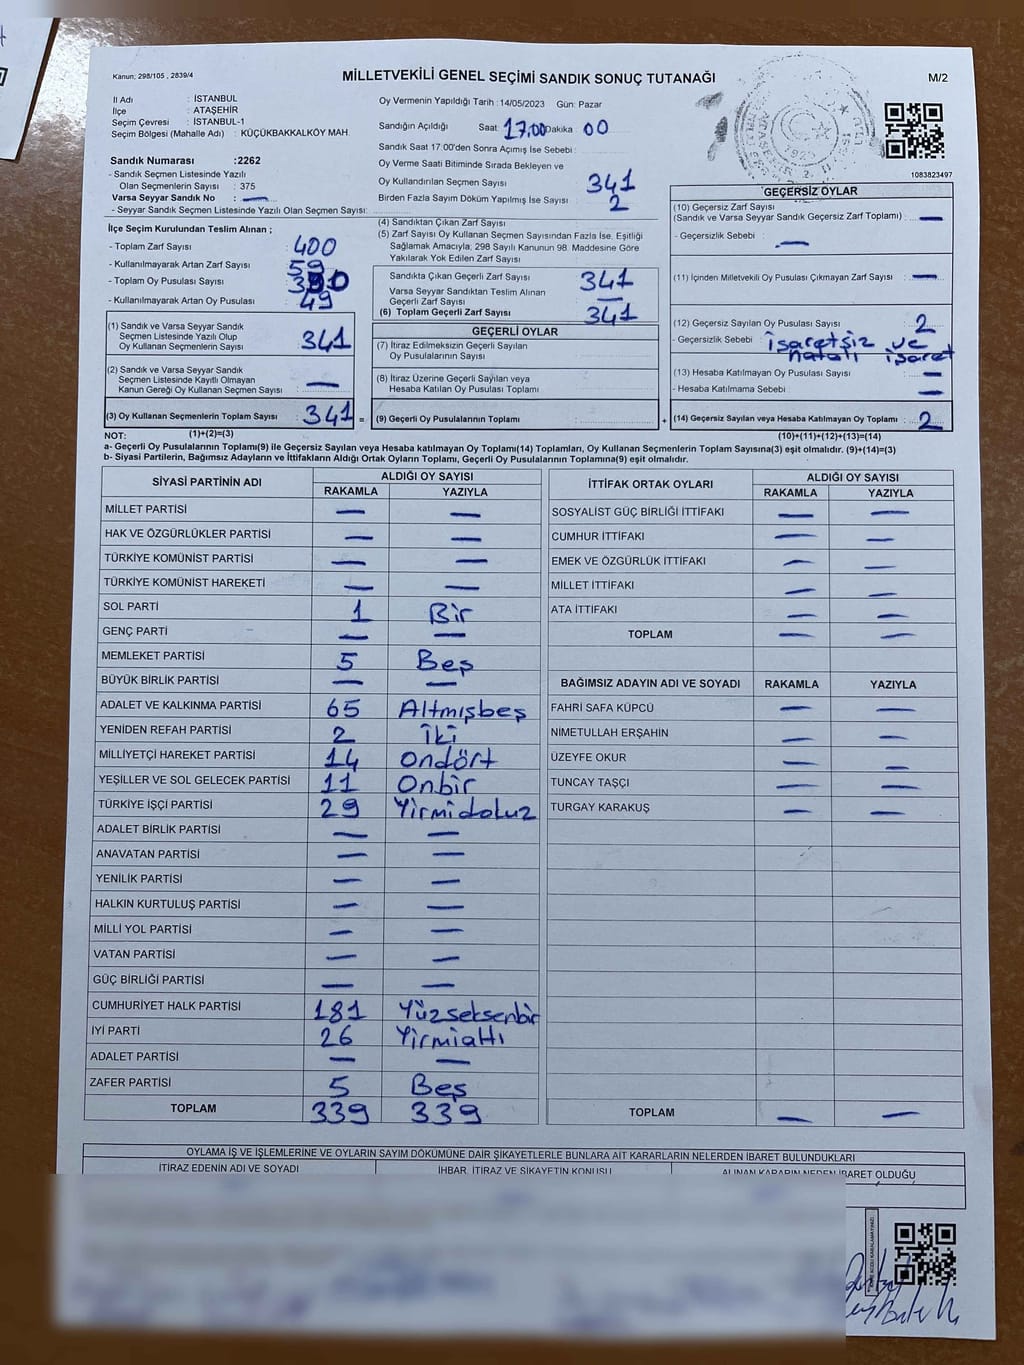 Kanun; 298/105 , 2839/4
MİLLETVEKİLİ GENEL SEÇİMİ SANDIK SONUÇ TUTANAĞI
M/2
İl Adı : İSTANBUL
İlçe : ATAŞEHİR
Seçim Çevresi : İSTANBUL-1
Seçim Bölgesi (Mahalle Adı) : KÜÇÜKBAKKALKÖY MAH.
Sandık Numarası :2262
- Sandık Seçmen Listesinde Yazılı
Olan Seçmenlerin Sayısı : 375
Varsa Seyyar Sandık No : —
- Seyyar Sandık Seçmen Listesinde Yazılı Olan Seçmen Sayısı:
Oy Vermenin Yapıldığı Tarih :14/05/2023 Gün: Pazar
Sandığın Açıldığı Saat: 17.00 Dakika 00
Sandık Saat 17:00'den Sonra Açımış İse Sebebi :
Oy Verme Saati Bitiminde Sırada Bekleyen ve
Oy Kullandırılan Seçmen Sayısı 341
Birden Fazla Sayım Döküm Yapılmış İse Sayısı : 2
1083823497
İlçe Seçim Kurulundan Teslim Alınan ;
- Toplam Zarf Sayısı : 400
- Kullanılmayarak Artan Zarf Sayısı : 59
- Toplam Oy Pusulası Sayısı :
- Kullanılmayarak Artan Oy Pusulası : 49
(1) Sandık ve Varsa Seyyar Sandık
Seçmen Listesinde Yazılı Olup
Oy Kullanan Seçmenlerin Sayısı : 341
(2) Sandık ve Varsa Seyyar Sandık
Seçmen Listesinde Kayıtlı Olmayan
Kanun Gereği Oy Kullanan Seçmen Sayısı : —
(3) Oy Kullanan Seçmenlerin Toplam Sayısı : 341 =
(1)+(2)=(3)
(4) Sandıktan Çıkan Zarf Sayısı :
(5) Zarf Sayısı Oy Kullanan Seçmen Sayısından Fazla İse, Eşitliği
Sağlamak Amacıyla; 298 Sayılı Kanunun 98. Maddesine Göre
Yakılarak Yok Edilen Zarf Sayısı :
Sandıkta Çıkan Geçerli Zarf Sayısı : 341
Varsa Seyyar Sandıktan Teslim Alınan
Geçerli Zarf Sayısı : —
(6) Toplam Geçerli Zarf Sayısı : 341
GEÇERLİ OYLAR
(7) İtiraz Edilmeksizin Geçerli Sayılan
Oy Pusulalarının Sayısı :
(8) İtiraz Üzerine Geçerli Sayılan veya
Hesaba Katılan Oy Pusulası Toplamı :
(9) Geçerli Oy Pusulalarının Toplamı : +
GEÇERSİZ OYLAR
(10) Geçersiz Zarf Sayısı
(Sandık ve Varsa Seyyar Sandık Geçersiz Zarf Toplamı) : —
- Geçersizlik Sebebi : —
(11) İçinden Milletvekili Oy Pusulası Çıkmayan Zarf Sayısı : —
(12) Geçersiz Sayılan Oy Pusulası Sayısı : 2
- Geçersizlik Sebebi : işaretsiz ve
hatalı işaret
(13) Hesaba Katılmayan Oy Pusulası Sayısı : —
- Hesaba Katılmama Sebebi : —
(14) Geçersiz Sayılan veya Hesaba Katılmayan Oy Toplamı : 2
(10)+(11)+(12)+(13)=(14)
NOT:
a- Geçerli Oy Pusulalarının Toplamı(9) ile Geçersiz Sayılan veya Hesaba katılmayan Oy Toplamı(14) Toplamları, Oy Kullanan Seçmenlerin Toplam Sayısına(3) eşit olmalıdır. (9)+(14)=(3)
b- Siyasi Partilerin, Bağımsız Adayların ve İttifakların Aldığı Ortak Oyların Toplamı, Geçerli Oy Pusulalarının Toplamına(9) eşit olmalıdır.
SİYASİ PARTİNİN ADI
ALDIĞI OY SAYISI
RAKAMLA YAZIYLA
MİLLET PARTİSİ — —
HAK VE ÖZGÜRLÜKLER PARTİSİ — —
TÜRKİYE KOMÜNİST PARTİSİ — —
TÜRKİYE KOMÜNİST HAREKETİ — —
SOL PARTİ 1 Bir
GENÇ PARTİ — —
MEMLEKET PARTİSİ 5 Beş
BÜYÜK BİRLİK PARTİSİ — —
ADALET VE KALKINMA PARTİSİ 65 Altmışbeş
YENİDEN REFAH PARTİSİ 2 İki
MİLLİYETÇİ HAREKET PARTİSİ 14 Ondört
YEŞİLLER VE SOL GELECEK PARTİSİ 11 Onbir
TÜRKİYE İŞÇİ PARTİSİ 29 Yirmidokuz
ADALET BİRLİK PARTİSİ — —
ANAVATAN PARTİSİ — —
YENİLİK PARTİSİ — —
HALKIN KURTULUŞ PARTİSİ — —
MİLLİ YOL PARTİSİ — —
VATAN PARTİSİ — —
GÜÇ BİRLİĞİ PARTİSİ — —
CUMHURİYET HALK PARTİSİ 181 Yüzseksenbir
İYİ PARTİ 26 Yirmialtı
ADALET PARTİSİ — —
ZAFER PARTİSİ 5 Beş
TOPLAM 339 339
İTTİFAK ORTAK OYLARI
ALDIĞI OY SAYISI
RAKAMLA YAZIYLA
SOSYALİST GÜÇ BİRLİĞİ İTTİFAKI — —
CUMHUR İTTİFAKI — —
EMEK VE ÖZGÜRLÜK İTTİFAKI — —
MİLLET İTTİFAKI — —
ATA İTTİFAKI — —
TOPLAM — —
BAĞIMSIZ ADAYIN ADI VE SOYADI RAKAMLA YAZIYLA
FAHRİ SAFA KÜPCÜ — —
NİMETULLAH ERŞAHİN — —
ÜZEYFE OKUR — —
TUNCAY TAŞÇI — —
TURGAY KARAKUŞ — —
TOPLAM — —
OYLAMA İŞ VE İŞLEMLERİNE VE OYLARIN SAYIM DÖKÜMÜNE DAİR ŞİKAYETLERLE BUNLARA AİT KARARLARIN NELERDEN İBARET BULUNDUKLARI
İTİRAZ EDENİN ADI VE SOYADI İHBAR, İTİRAZ VE ŞİKAYETİN KONUSU ALINAN KARARIN NEDEN İBARET OLDUĞU